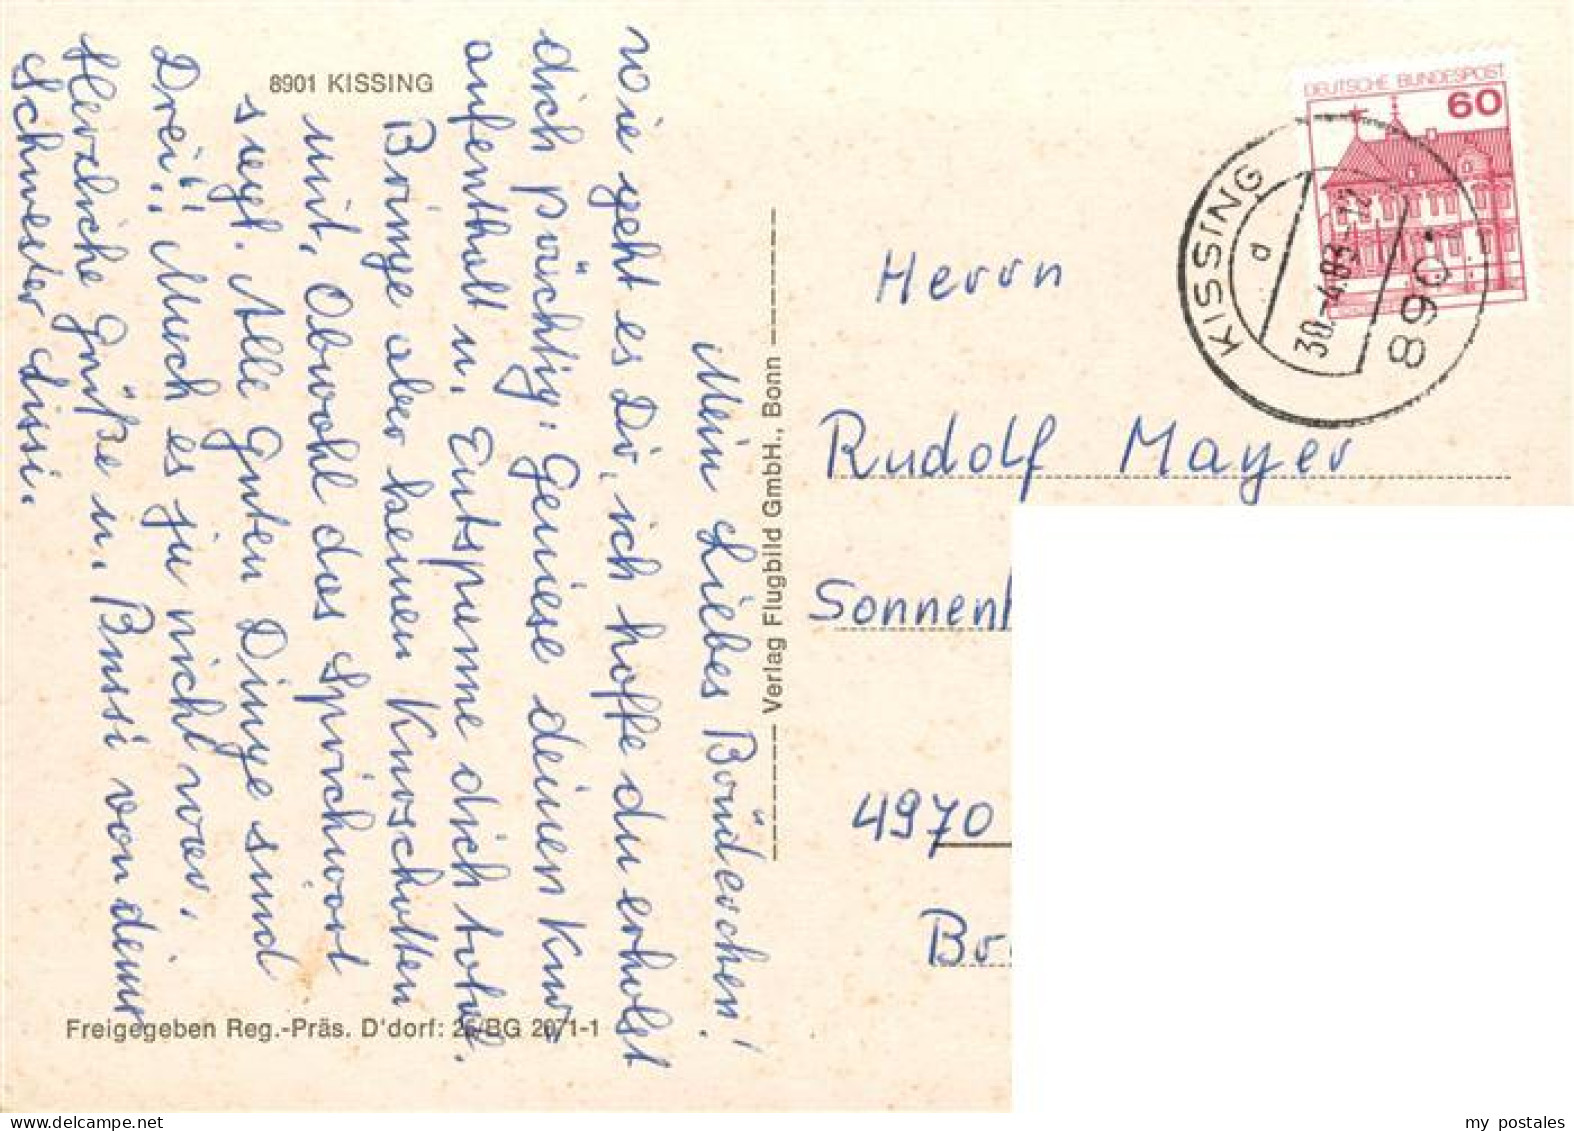 8901 KISSING
Mein Liebes Brüderchen!
Wie geht es Dir, ich hoffe du erholst
dich prächtig. Geniese deinen Kur-
aufenthalt u. Entspanne dich total.
Bringe aber keinen Kurschatten
mit, Obwohl das Sprichwort
sagt. Alle Guten Dinge sind
Drei!!! Auch es ja nicht war.
Herzliche Grüße u. Bussi von deiner
Schwester Sissi.
Freigegeben Reg.-Präs. D'dorf: 26/BG 2071-1
Verlag Flugbild GmbH., Bonn
DEUTSCHE BUNDESPOST
60
KISSING
d
30.-4.83-12
890
Herrn
Rudolf Mayer
Sonnen
4970
my postales